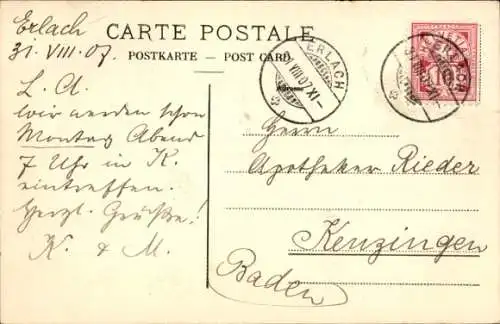 Erlach
31. VIII. 07.
CARTE POSTALE
POSTKARTE — POST CARD
ERLACH
VIII 07 XI-
ERLACH
10
L. A.
Wir werden schon
Montag Abend
7 Uhr in K.
eintreffen.
Herzl. Grüsse!
K. & M.
Herrn
Apotheker Rieder
Kenzingen
Baden